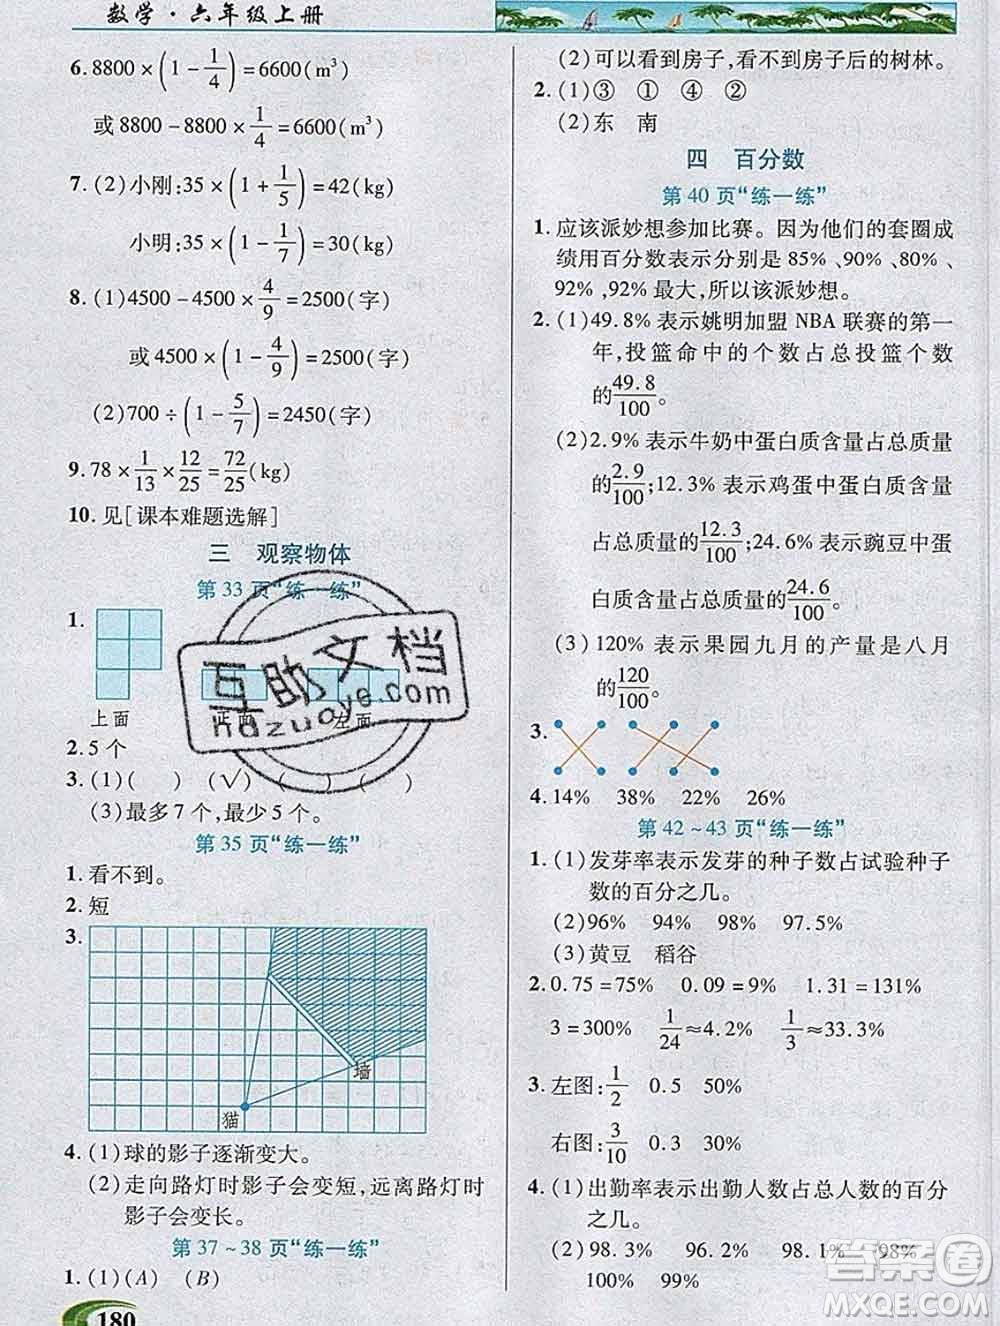 数学·六年级上册
6. 8800×(1-1/4)=6600(m³)
或 8800-8800×1/4=6600(m³)
7. (2)小刚:35×(1+1/5)=42(kg)
小明:35×(1-1/7)=30(kg)
8. (1)4500-4500×4/9=2500(字)
或 4500×(1-4/9)=2500(字)
(2)700÷(1-5/7)=2450(字)
9. 78×1/13×12/25=72/25(kg)
10. 见[课本难题选解]
三 观察物体
第 33 页“练一练”
1.
上面 正面 左面
2. 5 个
3. (1)( ) (√) ( ) ( )
(3)最多 7 个,最少 5 个。
第 35 页“练一练”
1. 看不到。
2. 短
3.
墙
猫
4. (1)球的影子逐渐变大。
(2)走向路灯时影子会变短,远离路灯时
影子会变长。
第 37~38 页“练一练”
1. (1)(A) (B)
180
(2)可以看到房子,看不到房子后的树林。
2. (1)③ ① ④ ②
(2)东 南
四 百分数
第 40 页“练一练”
1. 应该派妙想参加比赛。因为他们的套圈成
绩用百分数表示分别是 85%、90%、80%、
92%,92%最大,所以该派妙想。
2. (1)49.8%表示姚明加盟 NBA 联赛的第一
年,投篮命中的个数占总投篮个数
的49.8/100。
(2)2.9%表示牛奶中蛋白质含量占总质量
的2.9/100;12.3%表示鸡蛋中蛋白质含量
占总质量的12.3/100;24.6%表示豌豆中蛋
白质含量占总质量的24.6/100。
(3)120%表示果园九月的产量是八月
的120/100。
3.
4. 14% 38% 22% 26%
第 42~43 页“练一练”
1. (1)发芽率表示发芽的种子数占试验种子
数的百分之几。
(2)96% 94% 98% 97.5%
(3)黄豆 稻谷
2. 0.75=75% 0.9=90% 1.31=131%
3=300% 1/24≈4.2% 1/3≈33.3%
3. 左图:1/2 0.5 50%
右图:3/10 0.3 30%
4. (1)出勤率表示出勤人数占总人数的百分
之几。
(2)98.3% 96.2% 98.1% 98%
100% 99%
互助文档
hdzuoye.com
答案圈
MXQE.COM